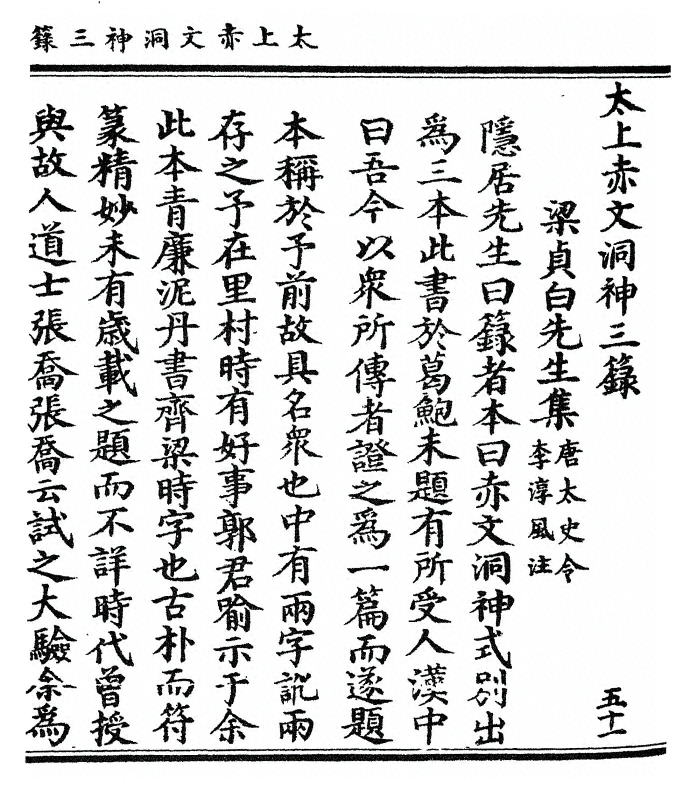 太上赤文洞神三籙
太上赤文洞神三籙
五十一
梁貞白先生集
唐太史令
李淳風注
隱居先生曰籙者本曰赤文洞神式別出
為三本此書於葛鮑末題有所受人漢中
曰吾今以衆所傳者證之為一篇而遂題
本稱於予前故具名衆也中有兩字訛兩
存之予在里村時有好事郭君喻示于余
此本青廉泥丹書齊梁時字也古朴而符
篆精妙未有歲載之題而不詳時代曾授
與故人道士張喬張喬云試之大驗余為